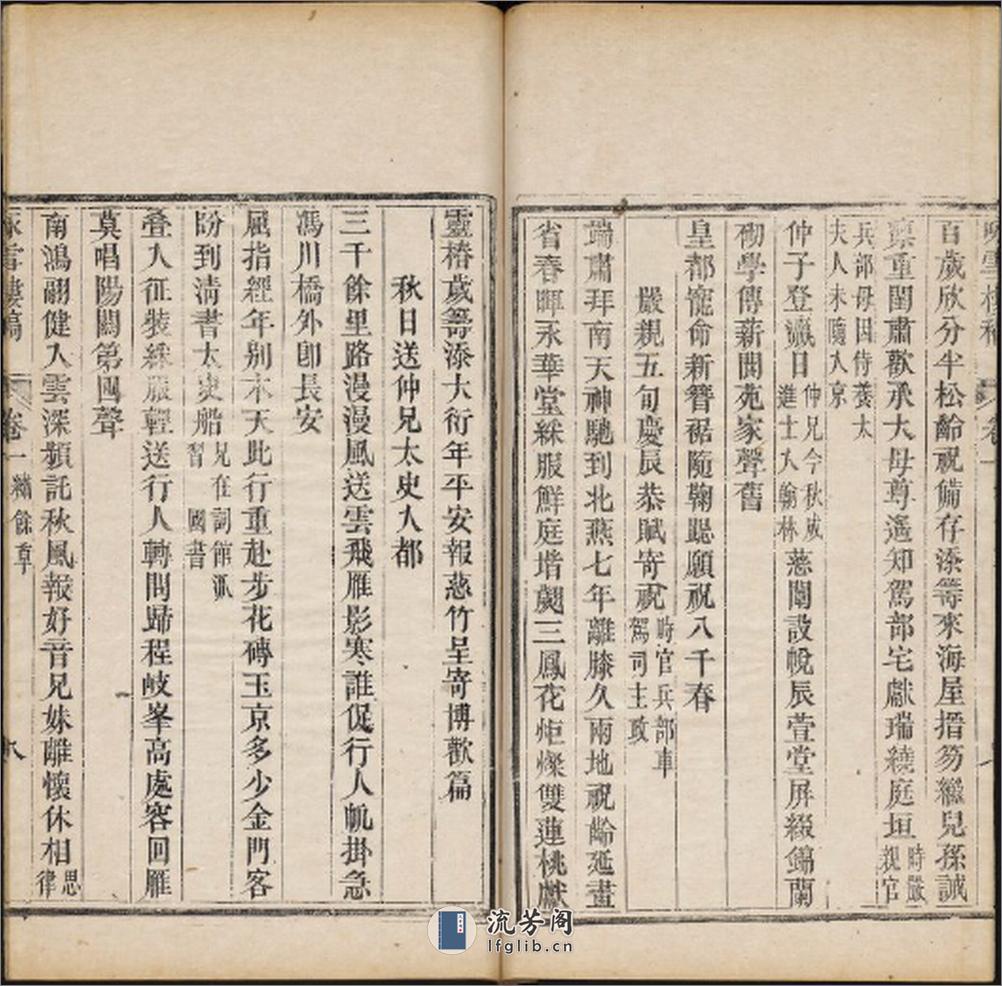 百歲欣分半松齡祝備存添籌來海屋搢笏繼兒孫誠
重闈肅歡承大母尊遙知駕部宅獻瑞繞庭垣時嚴親官
兵部母因侍養太夫人未隨入京
仲子登瀛日仲兄今秋成進士入翰林慈闈設帨辰萱堂屏綴錦蘭
砌學傳薪閬苑家聲舊
皇都寵命新簪裾隨鞠跽願祝八千春
嚴親五旬慶辰恭賦寄祝時官兵部車駕司主政
端肅拜南天神馳到北燕七年離膝久兩地祝齡延晝
省春暉永華堂綵服鮮庭堦翽三鳳花炬燦雙蓮桃獻
靈椿歲籌添大衍年平安報慈竹呈寄博歡篇
秋日送仲兄太史入都
三千餘里路漫漫風送雲飛雁影寒誰促行人帆掛急
馮川橋外卽長安
屈指經年別木天此行重赴步花磚玉京多少金門客
盼到淸書太史船兄在詞館派習國書
叠入征裝綵服輕送行人轉問歸程岐峯高處容回雁
莫唱陽關第四聲
南鴻翮健入雲深頻託秋風報好音兄妹離懷休相思律
詠雪樓稿 卷一 繡餘草 八
流芳阁
lfglib.cn